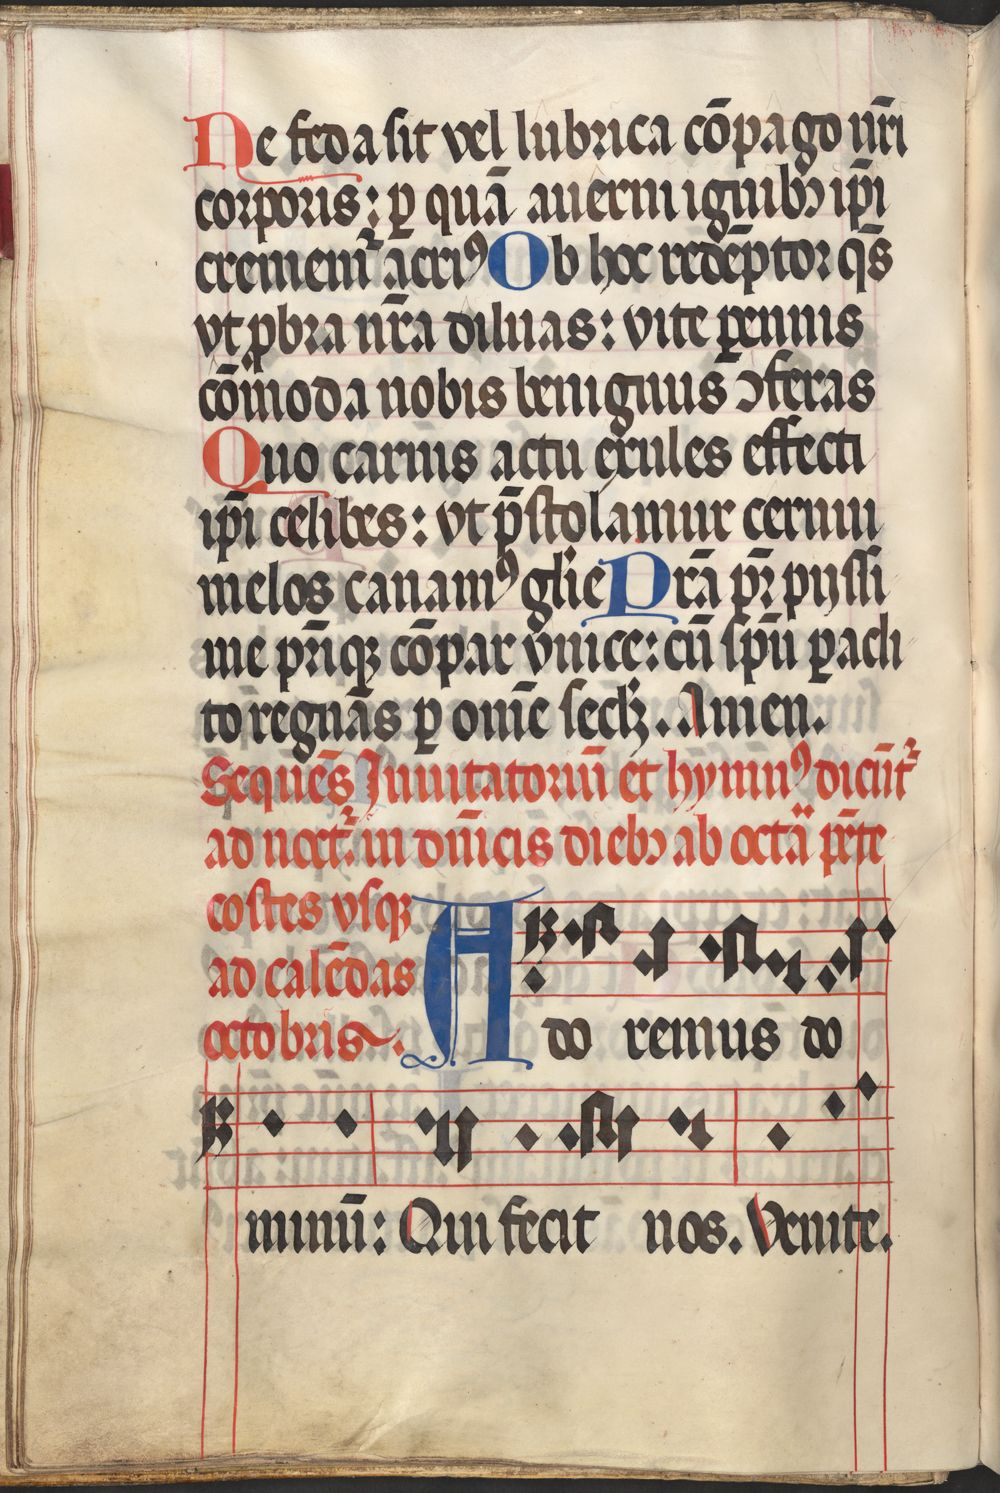 Ne feda sit vel lubrica cōpago nr̄i
corporis: ꝑ quā auerni ignibꝫ ip̄i
cremem᷑ acriꝰ Ob hoc redēptor qs̄
vt ꝓbra nr̄a diluas: vite ꝑennis
cōmoda nobis benignus ꝯferas
Quo carnis actu exules effecti
ip̄i celibes: vt p̄stolamur cernui
melos canamꝰ glīe Prā pr̄ pijssi
me pr̄iqꝫ cōpar vnice: cū spū ꝑacli
to regnās ꝑ omē seclꝫ. Amen.
Sequēs Inuitatoriū et hymnꝰ dicūt᷑
ad noct᷑. in dn̄icis diebꝫ ab octā pēte
costes vsqꝫ
ad calēdas
octobris.
Ado remus do
minū: Qui fecit nos. Venite.